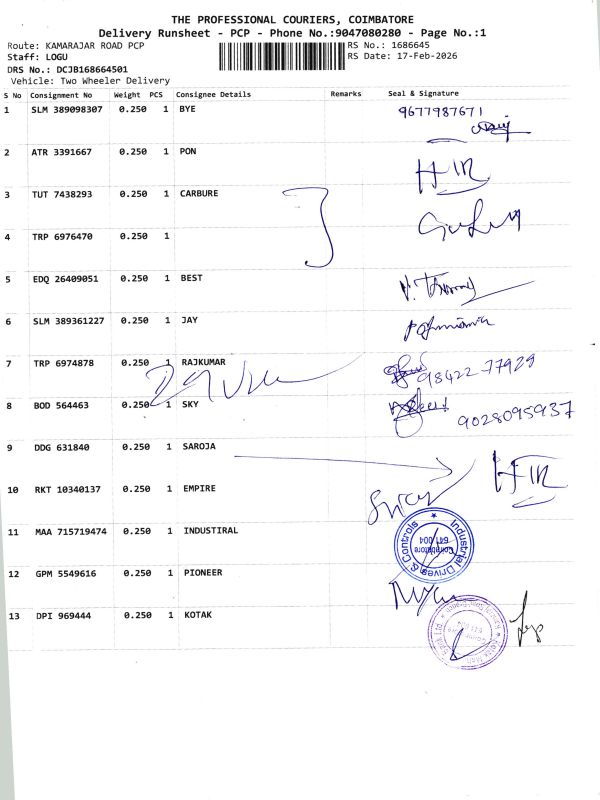 THE PROFESSIONAL COURIERS, COIMBATORE
Delivery Runsheet - PCP - Phone No.:9047080280 - Page No.:1
Route: KAMARAJAR ROAD PCP
RS No.: 1686645
Staff: LOGU
RS Date: 17-Feb-2026
DRS No.: DCJB168664501
Vehicle: Two Wheeler Delivery
S No Consignment No Weight PCS Consignee Details Remarks Seal & Signature
1 SLM 389098307 0.250 1 BYE 9677987671
2 ATR 3391667 0.250 1 PON
3 TUT 7438293 0.250 1 CARBURE
4 TRP 6976470 0.250 1
5 EDQ 26409051 0.250 1 BEST
6 SLM 389361227 0.250 1 JAY
7 TRP 6974878 0.250 1 RAJKUMAR 98422 77929
8 BOD 564463 0.250 1 SKY 9028095937
9 DDG 631840 0.250 1 SAROJA
10 RKT 10340137 0.250 1 EMPIRE
11 MAA 715719474 0.250 1 INDUSTIRAL
Industrial Drives & Controls
Coimbatore
641 004
12 GPM 5549616 0.250 1 PIONEER
13 DPI 969444 0.250 1 KOTAK